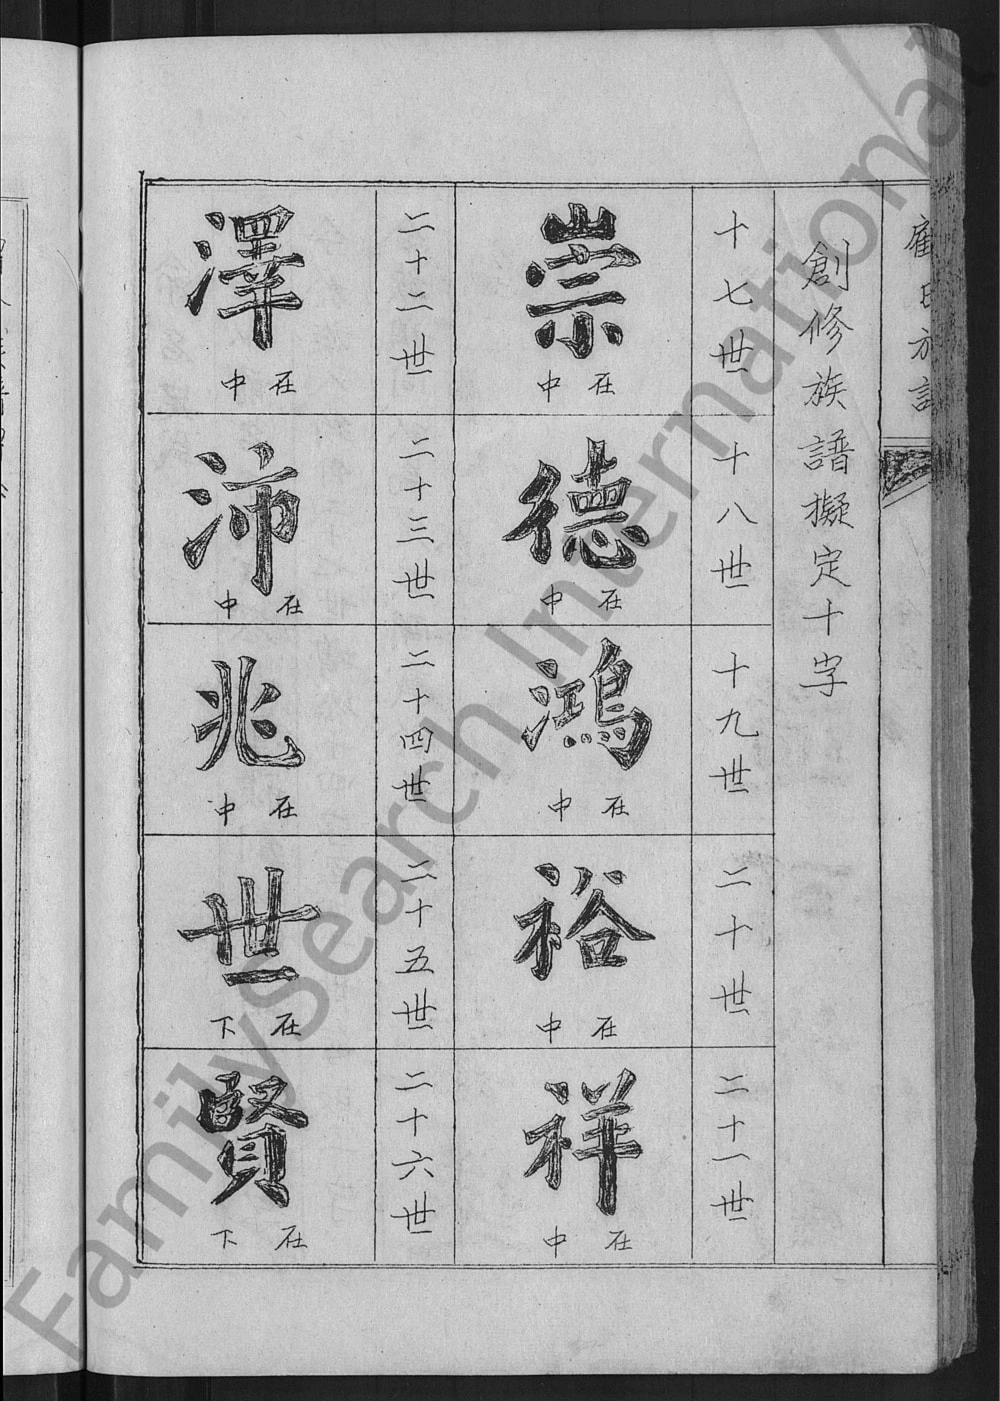 創修族譜擬定十字
十七世
崇
在中
十八世
德
在中
十九世
鴻
在中
二十世
裕
在中
二十一世
祥
在中
二十二世
澤
在中
二十三世
沛
在中
二十四世
兆
在中
二十五世
世
在下
二十六世
賢
在下
FamilySearch International